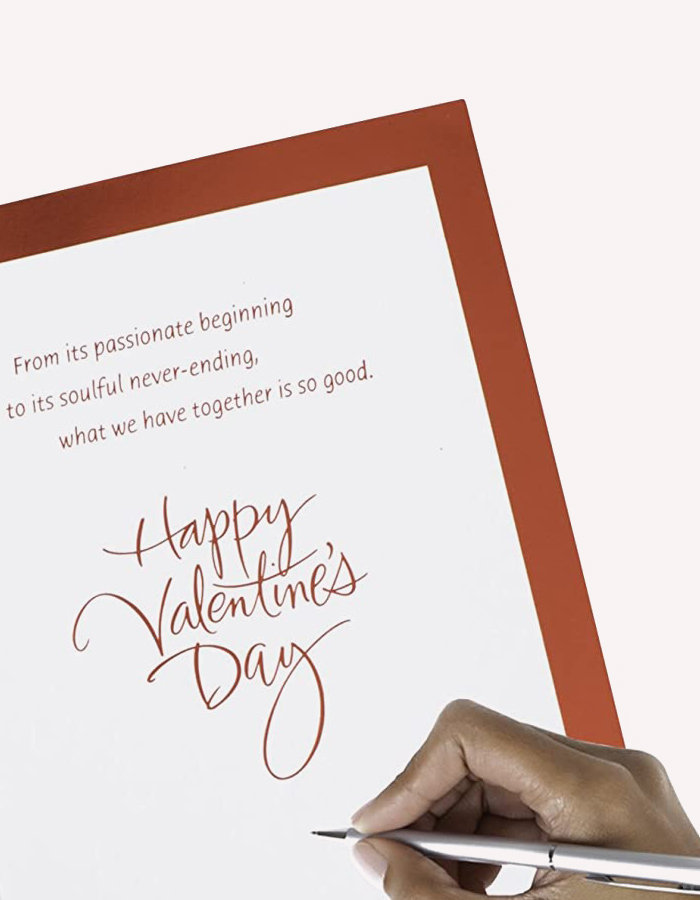 From its passionate beginning
to its soulful never-ending,
what we have together is so good.
Happy
Valentine's
Day